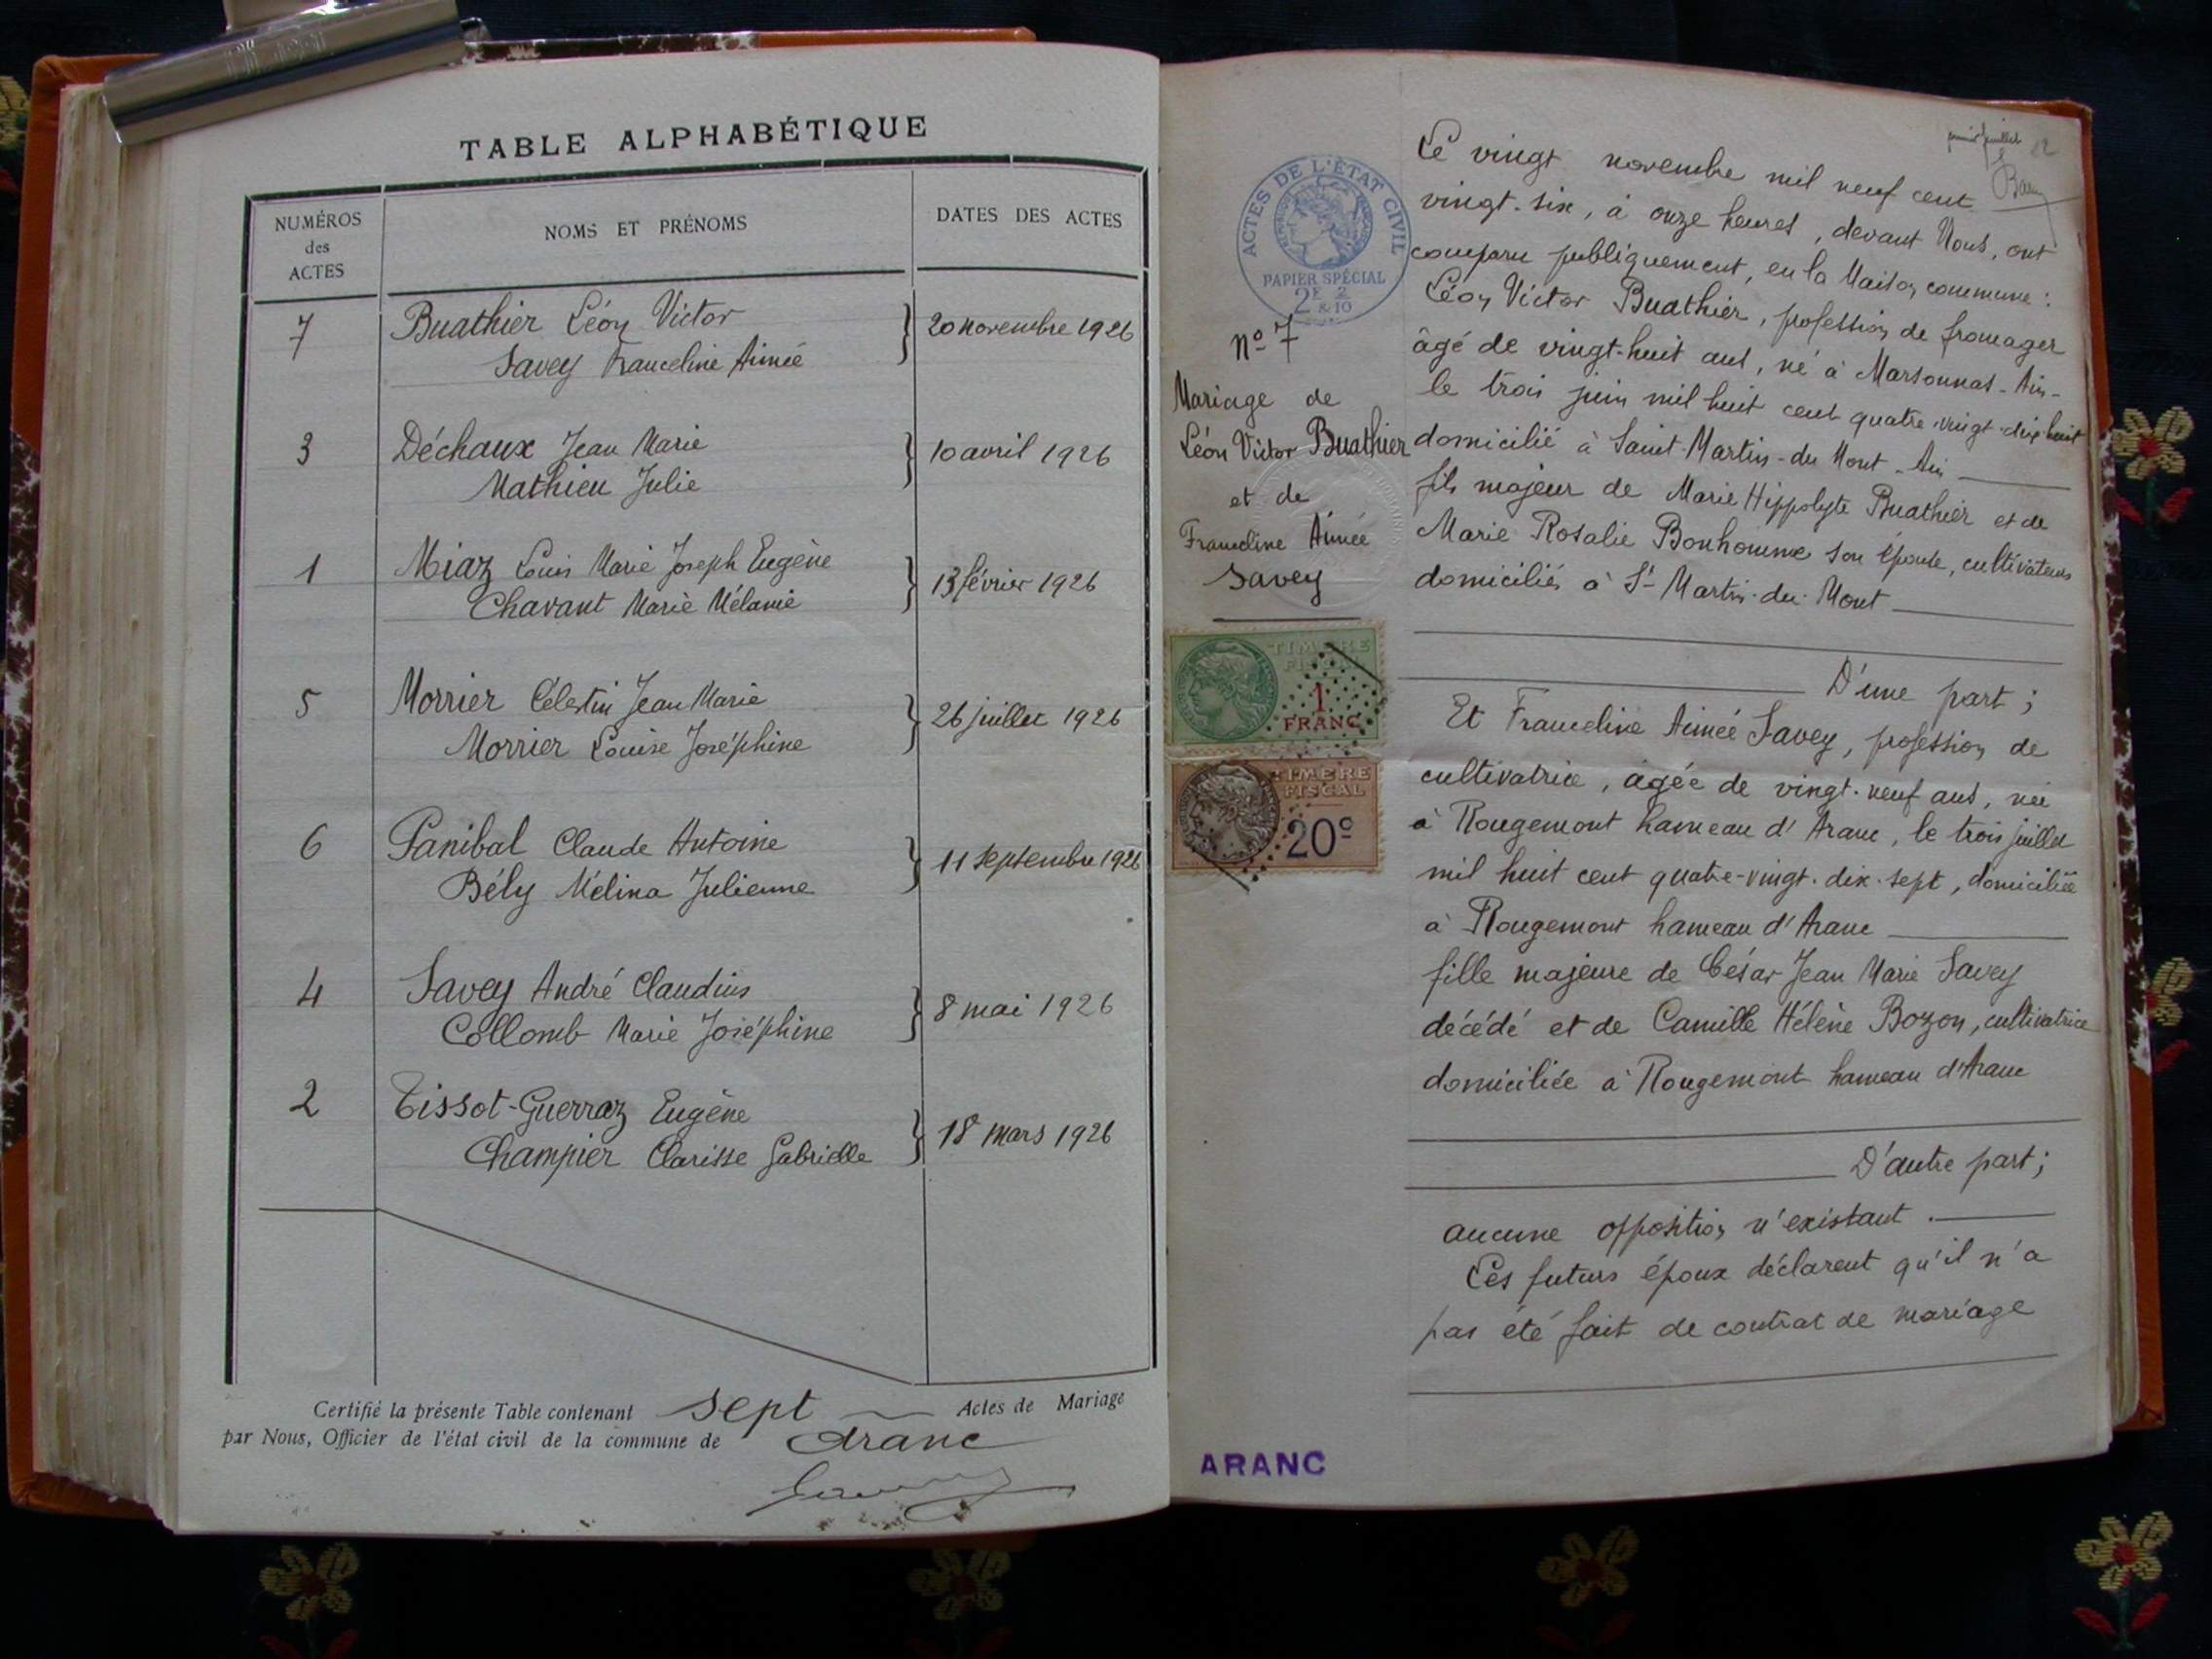 TABLE ALPHABÉTIQUE
NUMÉROS des ACTES
NOMS ET PRÉNOMS
DATES DES ACTES
7 Buathier Léon Victor } 20 novembre 1926
Savey Franceline Aimée
3 Déchaux Jean Marie } 10 avril 1926
Mathieu Julie
1 Miaz Louis Marie Joseph Eugène } 13 février 1926
Chavant Marie Mélanie
5 Morrier Célestin Jean Marie } 26 juillet 1926
Morrier Louise Joséphine
6 Panibal Claude Antoine } 11 septembre 1926
Bély Mélina Julienne
4 Savey André Claudius } 8 mai 1926
Collomb Marie Joséphine
2 Tissot-Guerraz Eugène } 18 mars 1926
Champier Clarisse Gabrielle
Certifié la présente Table contenant sept Actes de Mariage
par Nous, Officier de l'état civil de la commune de Aranc
ACTES DE L'ÉTAT CIVIL
PAPIER SPÉCIAL
2F 2/10
Nº 7
Mariage de
Léon Victor Buathier
et de
Franceline Aimée
Savey
TIMBRE FISCAL
1 FRANC
TIMBRE FISCAL
20c
ARANC
Le vingt novembre mil neuf cent
vingt-six, à onze heures, devant Nous, ont
comparu publiquement, en la Maison commune :
Léon Victor Buathier, profession de fromager
âgé de vingt-huit ans, né à Marsonnas - Ain -
le trois juin mil huit cent quatre-vingt-dix-huit
domicilié à Saint-Martin-du Mont - Ain
fils majeur de Marie Hippolyte Buathier et de
Marie Rosalie Bonhomme son épouse, cultivateurs
domiciliés à St-Martin-du-Mont
D'une part ;
Et Franceline Aimée Savey, profession de
cultivatrice, âgée de vingt-neuf ans, née
à Rougemont hameau d'Aranc, le trois juillet
mil huit cent quatre-vingt-dix-sept, domiciliée
à Rougemont hameau d'Aranc
fille majeure de César Jean Marie Savey
décédé et de Camille Hélène Bozon, cultivatrice
domiciliée à Rougemont hameau d'Aranc
D'autre part ;
aucune opposition n'existant.
Les futurs époux déclarent qu'il n'a
pas été fait de contrat de mariage